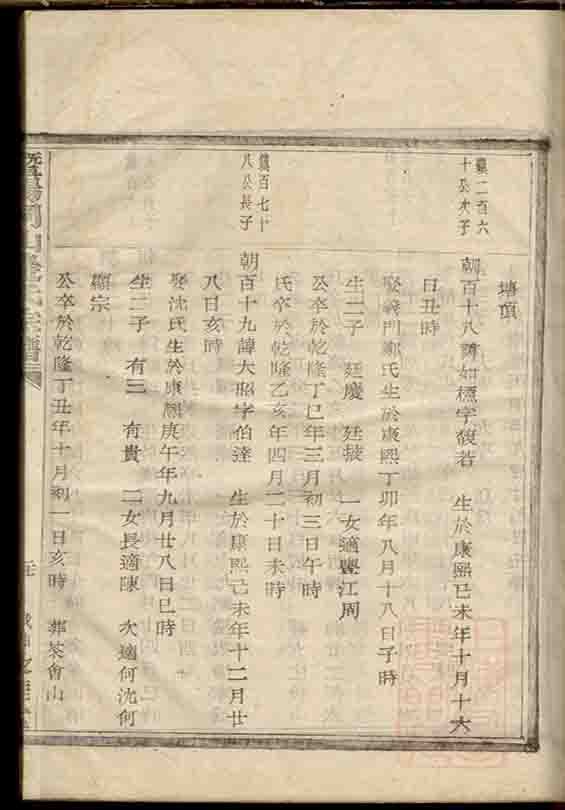 塘頂
鎮二百六
十公次子
朝百十八諱如標字馥若 生於康熙己未年十月十六
日丑時
娶義門鄭氏生於康熙丁卯年八月十八日子時
生二子 廷慶 廷掞 一女適壂江周
公卒於乾隆丁巳年三月初三日午時
氏卒於乾隆乙亥年四月二十日未時
鎮百七十
八公長子
朝百十九諱大昭字伯達 生於康熙己未年十二月廿
八日亥時
娶沈氏生於康熙庚午年九月廿八日巳時
生二子 有三 有貴 二女長適陳 次適何沈何
顯宗
公卒於乾隆丁丑年十月初一日亥時 葬茶會山
暨陽 山 氏宗譜